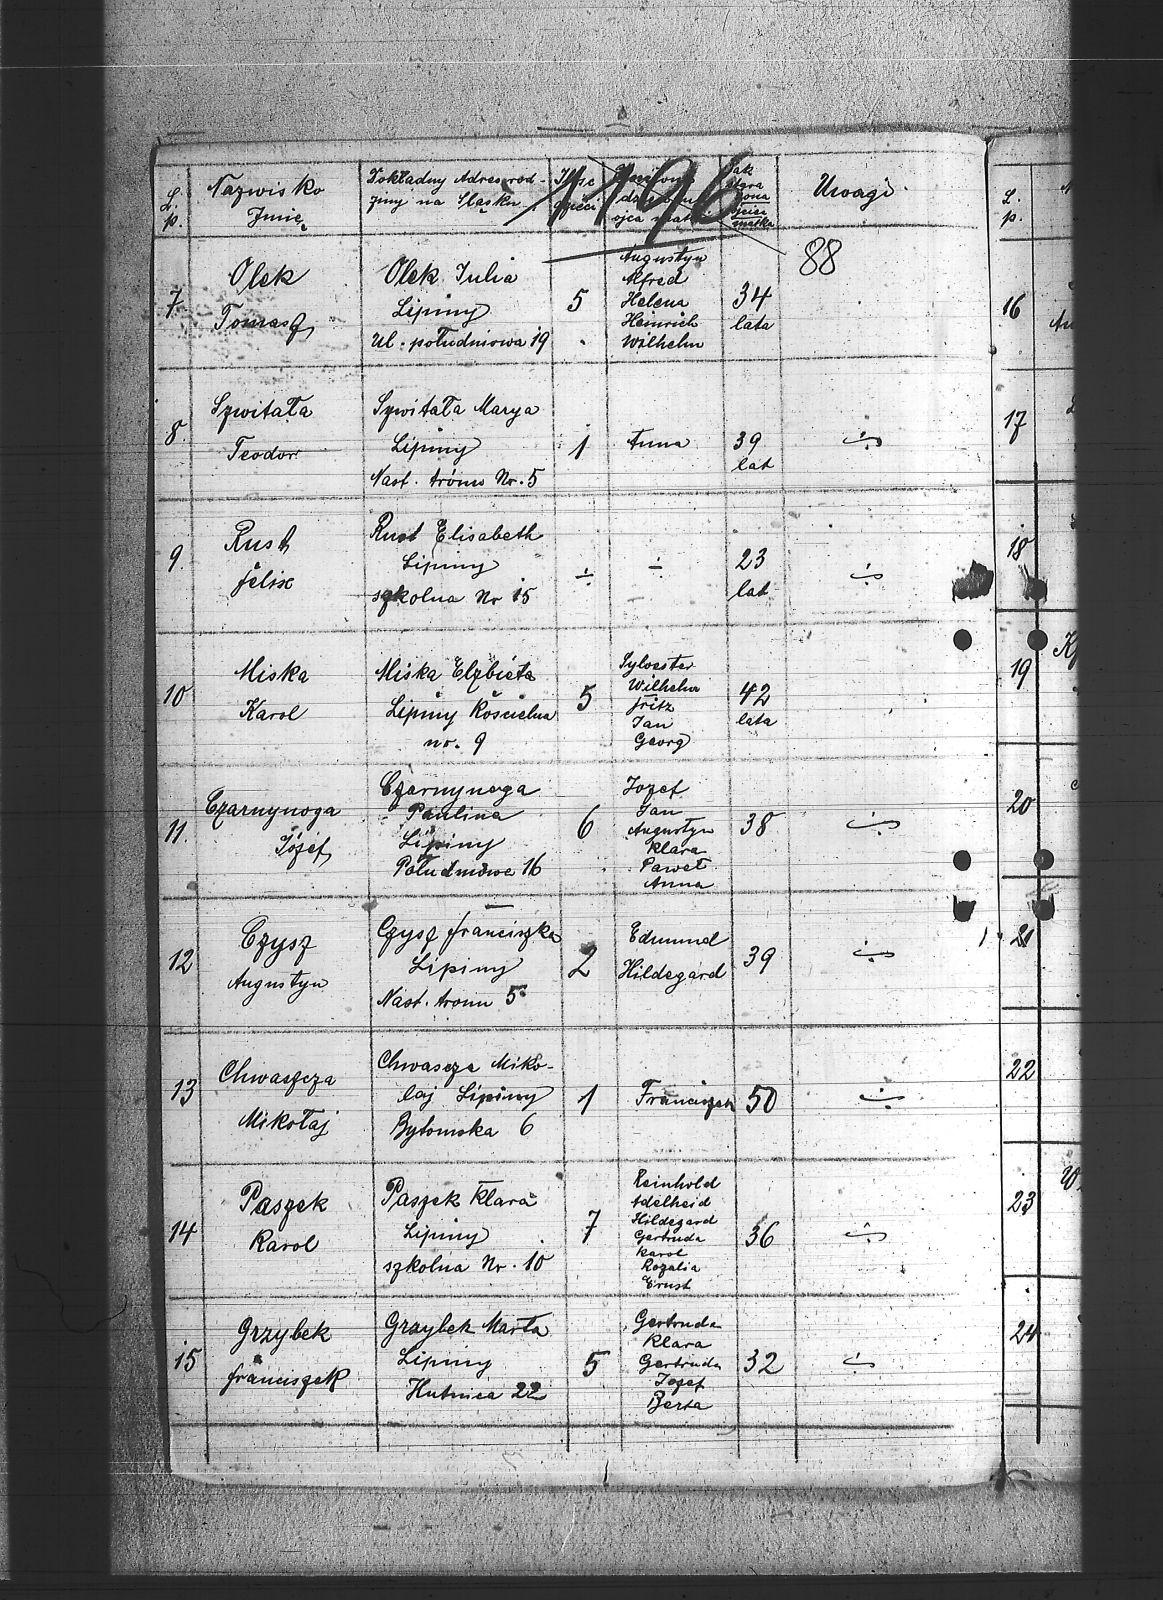 L. p.
Nazwisko
Imię
Dokładny Adres rod-
ziny na Śląsku
1196
Jak
stara
żona
matka
Uwagi
88
7
Olek
Tomasz
Olek Julia
Lipiny
Ul. południowa 19
5
Augustyn
Alfred
Helena
Heinrich
Wilhelm
34
lata
8.
Szwitała
Teodor
Szwitała Marya
Lipiny
Nast. tronu Nr. 5
1
Anna
39
lat
9.
Rust
Felix
Rust Elisabeth
Lipiny
szkolna Nr 15
÷
÷
23
lat
10
Miska
Karol
Miska Elżbieta
Lipiny Kościelna
no. 9
5
Sylvester
Wilhelm
Fritz
Jan
Georg
42
lata
11.
Czarnynoga
Józef
Czarnynoga
Paulina
Lipiny
Południowe 16
6
Jozef
Jan
Augustyn
Klara
Paweł
Anna
38
12
Czysz
Augustyn
Czysz Franciszka
Lipiny
Nast. tronu 5
2
Edmund
Hildegard
39
13
Chwaszcza
Mikołaj
Chwascza Miko-
laj Lipiny
Bytomska 6
1
Franciszek
50
14
Paszek
Karol
Paszek Klara
Lipiny
szkolna Nr. 10
7
Reinhold
Adelheid
Hildegard
Gertruda
Karol
Rozalia
Ernst
36
15
Grzybek
Franciszek
Grzybek Marta
Lipiny
Hutnica 22
5
Gertruda
Klara
Gertruda
Jozef
Berta
32
L.
p.
16
17
18
19
20
21
22
23
24